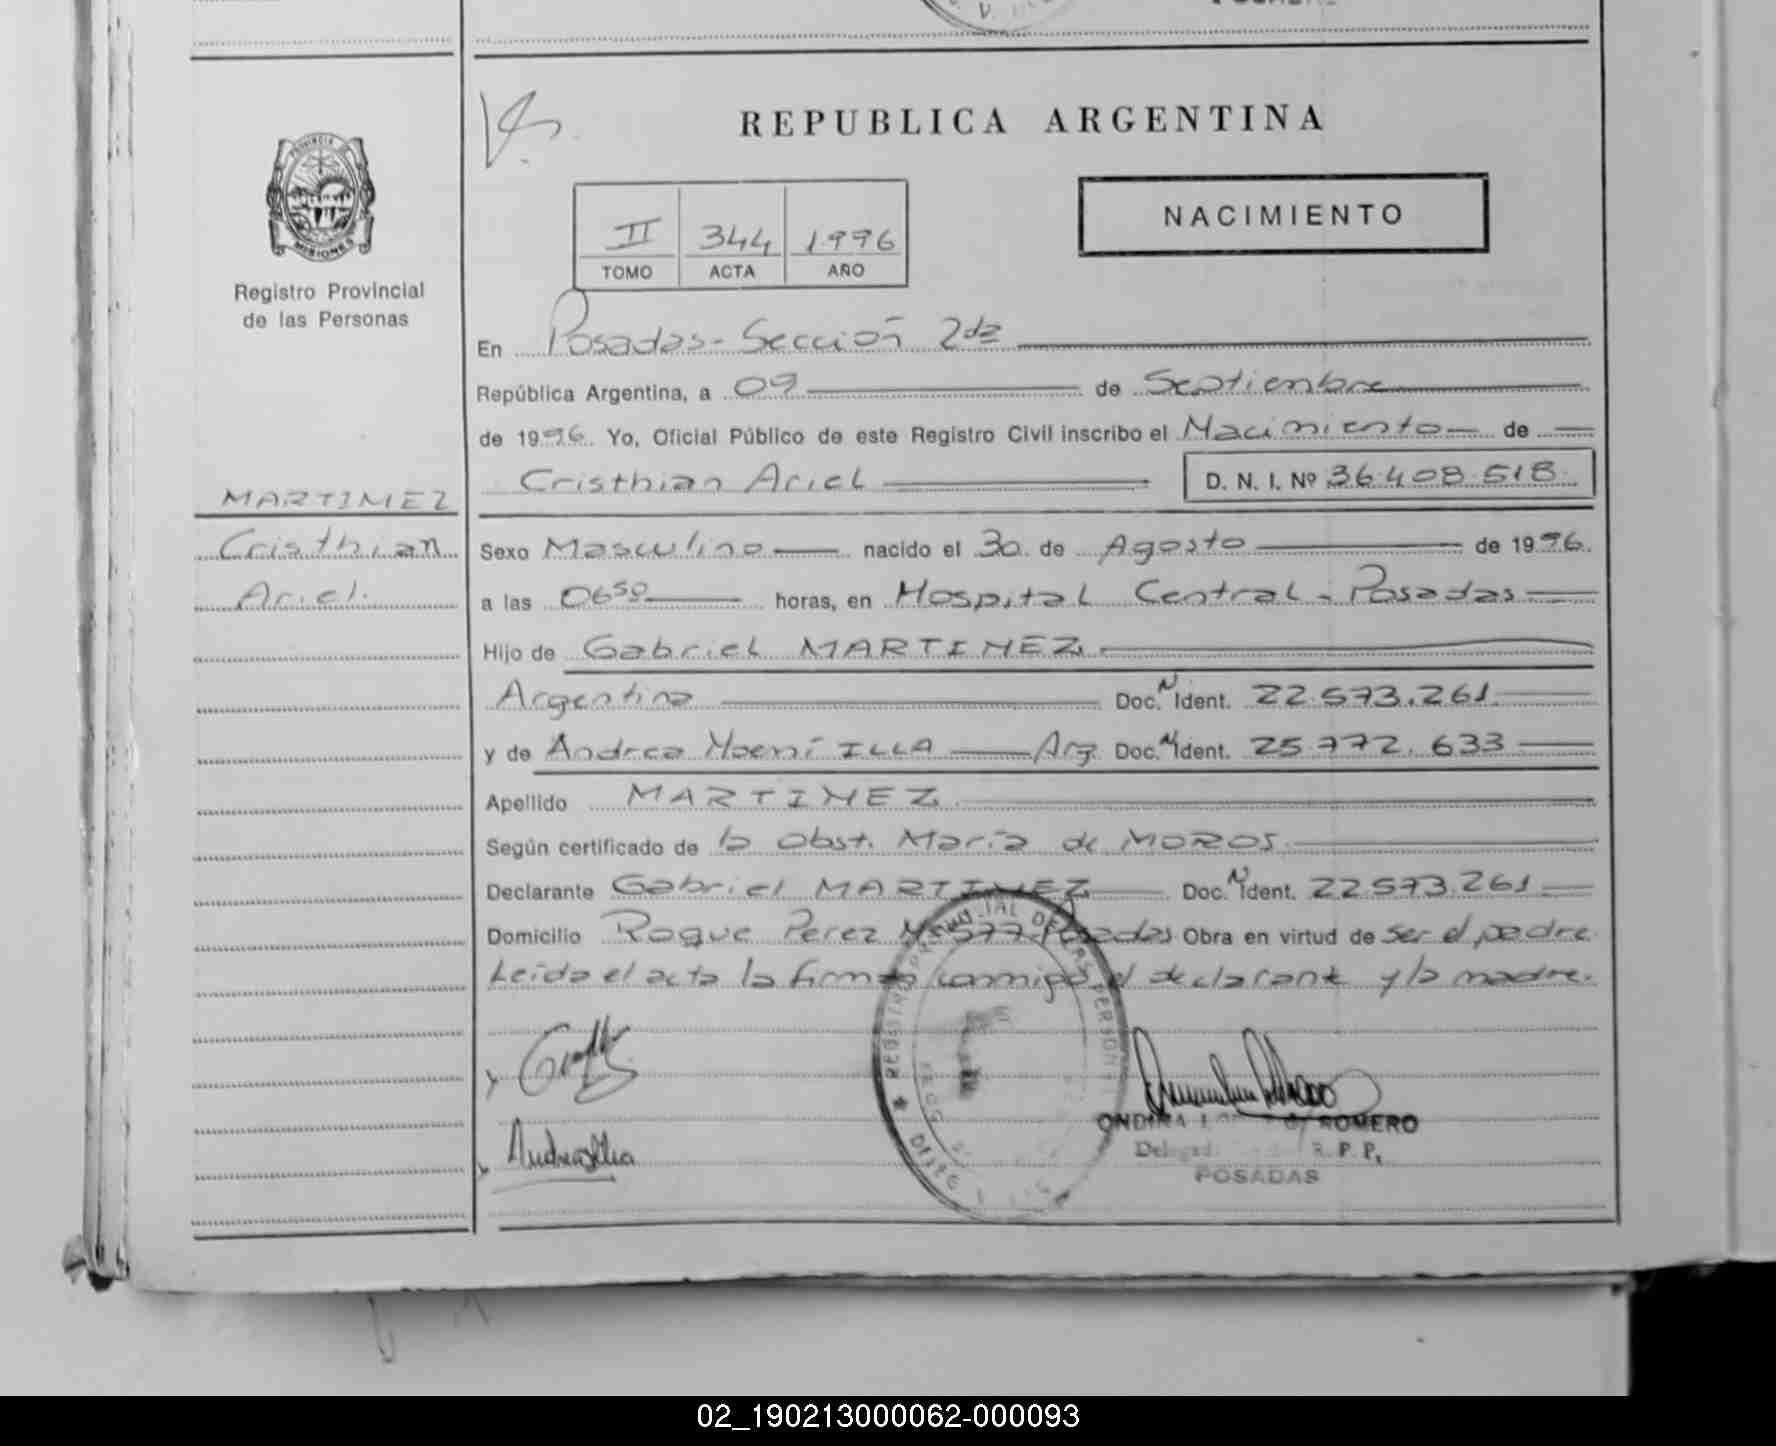 REPUBLICA ARGENTINA
NACIMIENTO
PROVINCIA DE
MISIONES
Registro Provincial
de las Personas
II 344 1996
TOMO ACTA AÑO
En Posadas - Sección 2da
República Argentina, a 09 de Septiembre
de 1996. Yo, Oficial Público de este Registro Civil inscribo el Nacimiento de
Cristhian Ariel D. N. I. Nº 36.408.518
MARTINEZ
Cristhian
Ariel.
Sexo Masculino nacido el 30 de Agosto de 1996.
a las 06 50 horas, en Hospital Central - Posadas
Hijo de Gabriel MARTINEZ.
Argentina Doc. N Ident. 22.573.261
y de Andrea Noemí ILLA Arg. Doc. N Ident. 25.772.633
Apellido MARTINEZ
Según certificado de la Obst. María de MOROS.
Declarante Gabriel MARTINEZ Doc. N Ident. 22573.261
Domicilio Roque Perez Nº 577 Posadas Obra en virtud de ser el padre.
Leída el acta la firma conmigo el declarante y la madre.
Andrea Illa
ONDINA ROMERO
R. P. P.
POSADAS
02_190213000062-000093